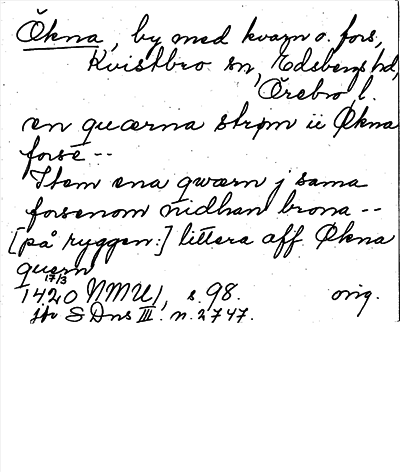 Ökna, by med kvarn o. fors,
Kvistbro sn, Edsbergs hd,
Örebro l.
en quærna strøm ii Økna
forse --
Item ena qwærn j sama
forsenom nidhan brona --
[på ryggen:] littera aff Økna
quern
17/3
1420 NMU 1, s. 98. orig.
jfr SDns III. n. 2747.